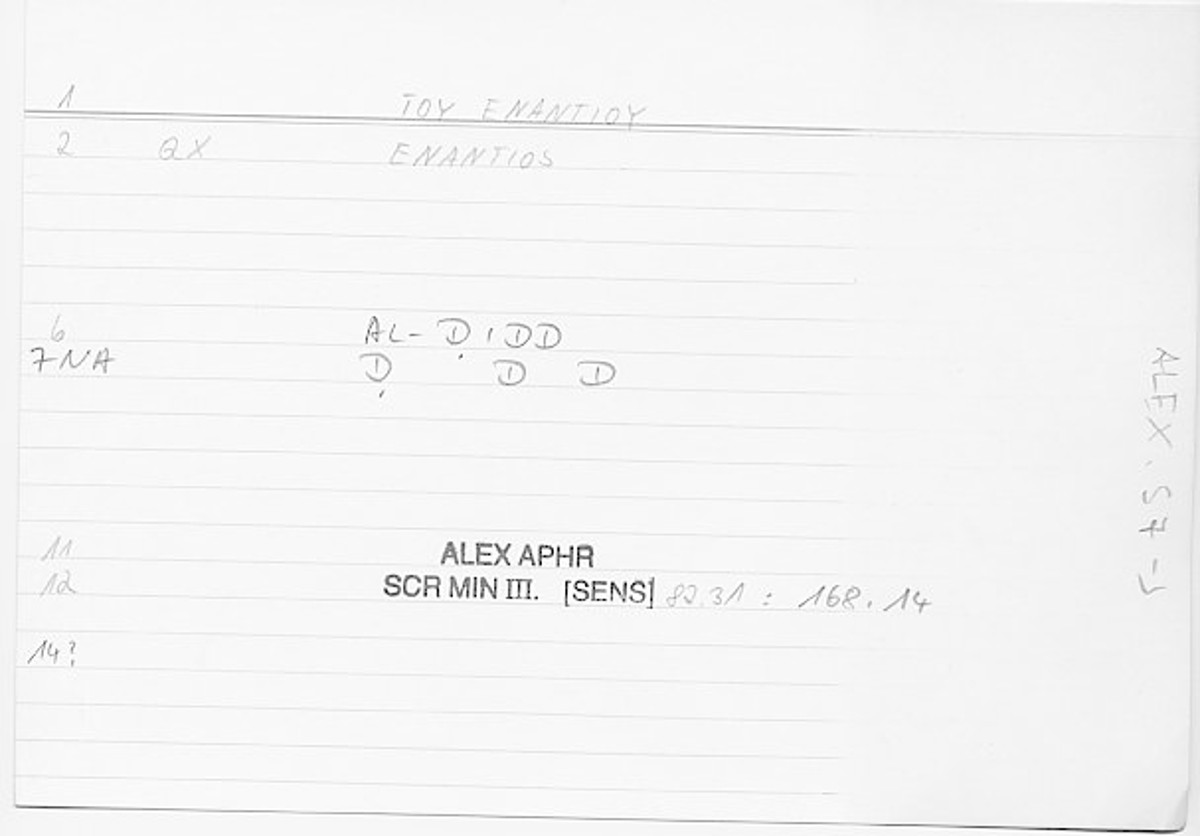 1 TOY ENANTIOY
2 QX ENANTIOS
6 AL-Ḍ IDD
7 NA Ḍ D D
11 ALEX APHR
12 SCR MIN III. [SENS] 82.31 : 168.14
14?